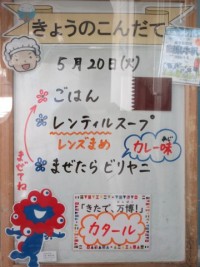 きょうのこんだて
5月20日(火)
ごはん
レンティルスープ
レンズまめ
カレー味
まぜたらビリヤニ
まぜてね
「きたで、万博!」
カタール